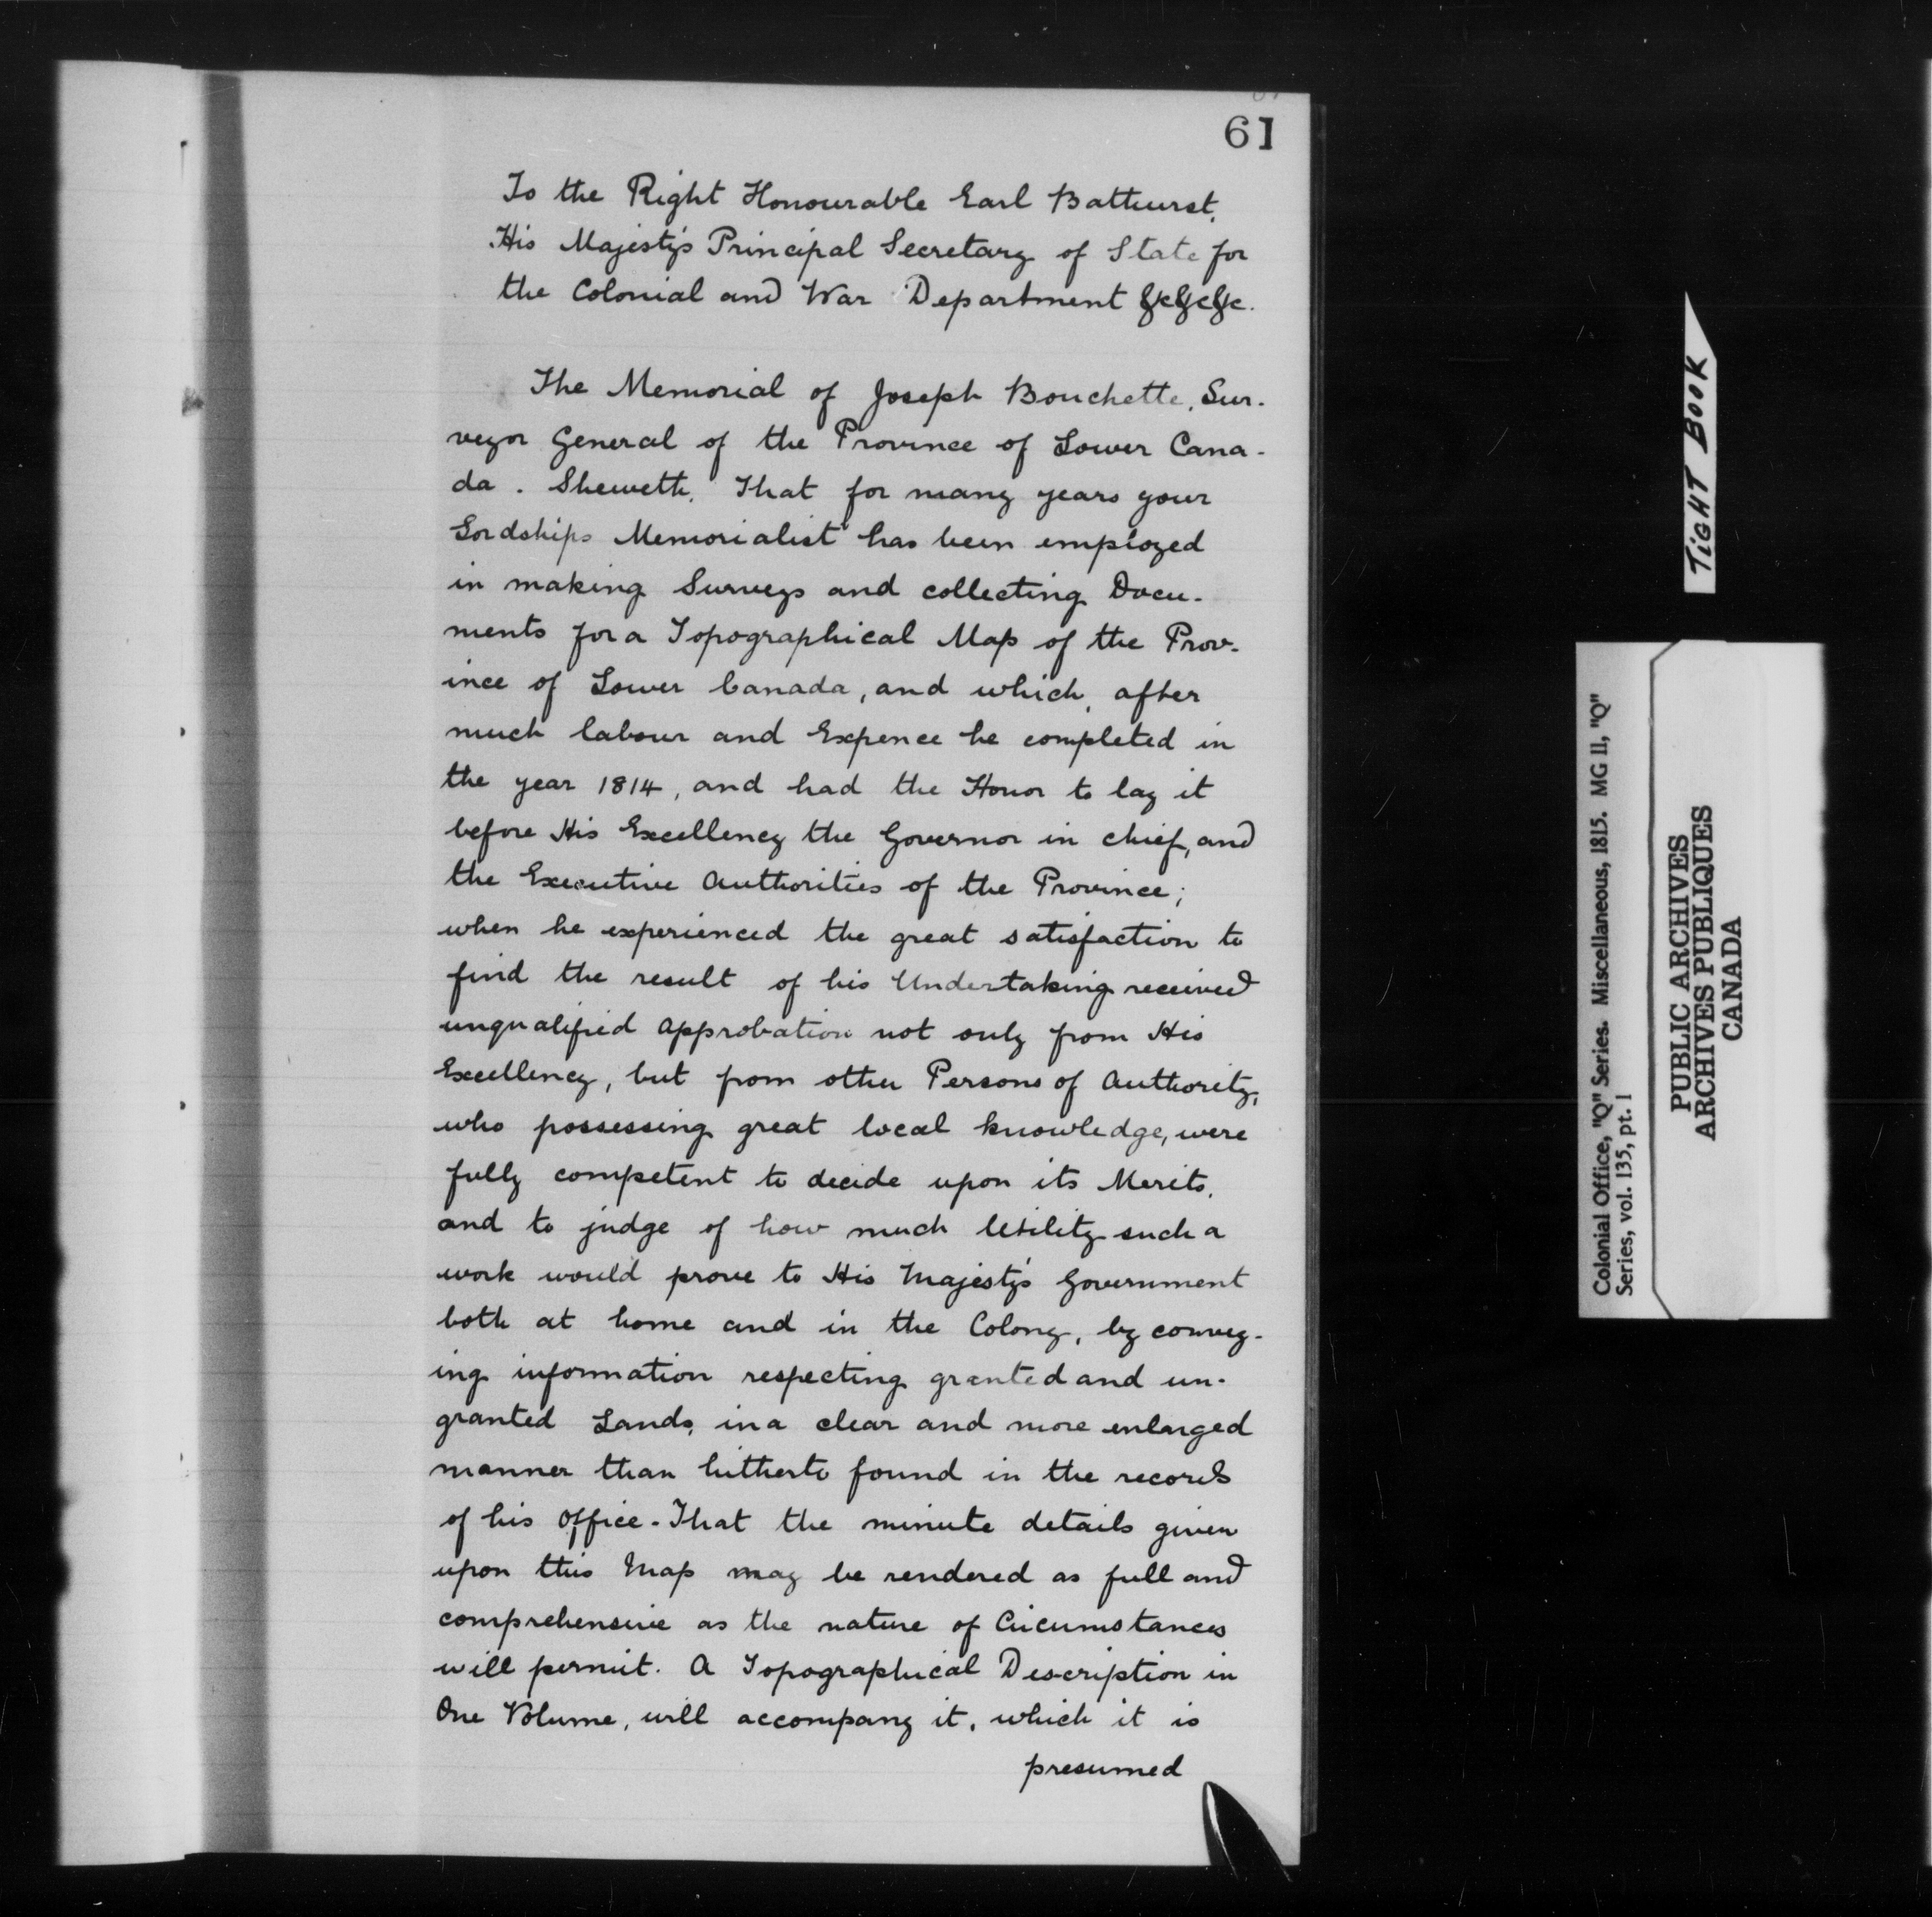 61
To the Right Honourable Earl Bathurst,
His Majesty's Principal Secretary of State for
the Colonial and War Department &c&c&c.
The Memorial of Joseph Bouchette, Sur-
veyor General of the Province of Lower Cana-
da. Sheweth, That for many years your
Lordships Memorialist has been employed
in making Surveys and collecting Docu-
ments for a Topographical Map of the Prov-
ince of Lower Canada, and which, after
much labour and Expence he completed in
the year 1814, and had the Honor to lay it
before His Excellency the Governor in chief, and
the Executive Authorities of the Province;
when he experienced the great satisfaction to
find the result of his Undertaking received
unqualified Approbation not only from His
Excellency, but from other Persons of Authority,
who possessing great local knowledge, were
fully competent to decide upon its Merits,
and to judge of how much Utility such a
work would prove to His Majesty's Government
both at home and in the Colony, by convey-
ing information respecting granted and un-
granted Lands, in a clear and more enlarged
manner than hitherto found in the records
of his Office - That the minute details given
upon this Map may be rendered as full and
comprehensive as the nature of Circumstances
will permit. A Topographical Description in
One Volume, will accompany it, which it is
presumed
TIGHT BOOK
Colonial Office, "Q" Series. Miscellaneous, 1815. MG 11, "Q"
Series, vol. 135, pt. 1
PUBLIC ARCHIVES
ARCHIVES PUBLIQUES
CANADA